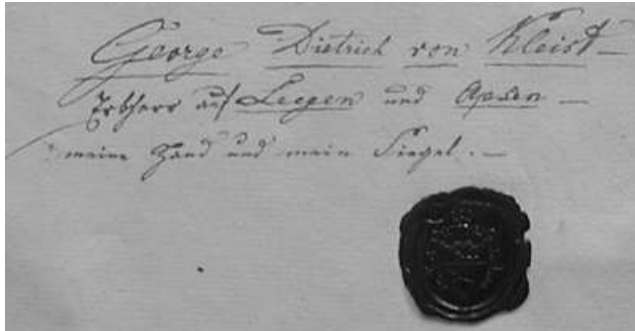 George Dietrich von Kleist
Erbherr auf Leegen und Apsen
meine Hand und mein Siegel.